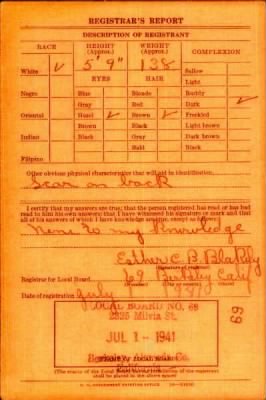 REGISTRAR'S REPORT
DESCRIPTION OF REGISTRANT
RACE HEIGHT (Approx.) WEIGHT (Approx.) COMPLEXION
White ✓ 5' 9" 138 Sallow
EYES HAIR Light
Negro Blue Blonde Ruddy
Gray Red Dark ✓
Oriental Hazel ✓ Brown ✓ Freckled
Brown Black Light brown
Indian Black Gray Dark brown
Bald Black
Filipino
Other obvious physical characteristics that will aid in identification
Scar on back
I certify that my answers are true; that the person registered has read or has had
read to him his own answers; that I have witnessed his signature or mark and that
all of his answers of which I have knowledge are true, except as follows:
None to my knowledge
Esther C. B.
(Signature of registrar)
Registrar for Local Board 69 Berkeley Calif
Date of registration July
LOCAL BOARD NO. 68
2325 Milvia St.
JUL 1 - 1941
Berkeley Co.
69
(STAMP OF LOCAL BOARD)
U. S. GOVERNMENT PRINTING OFFICE